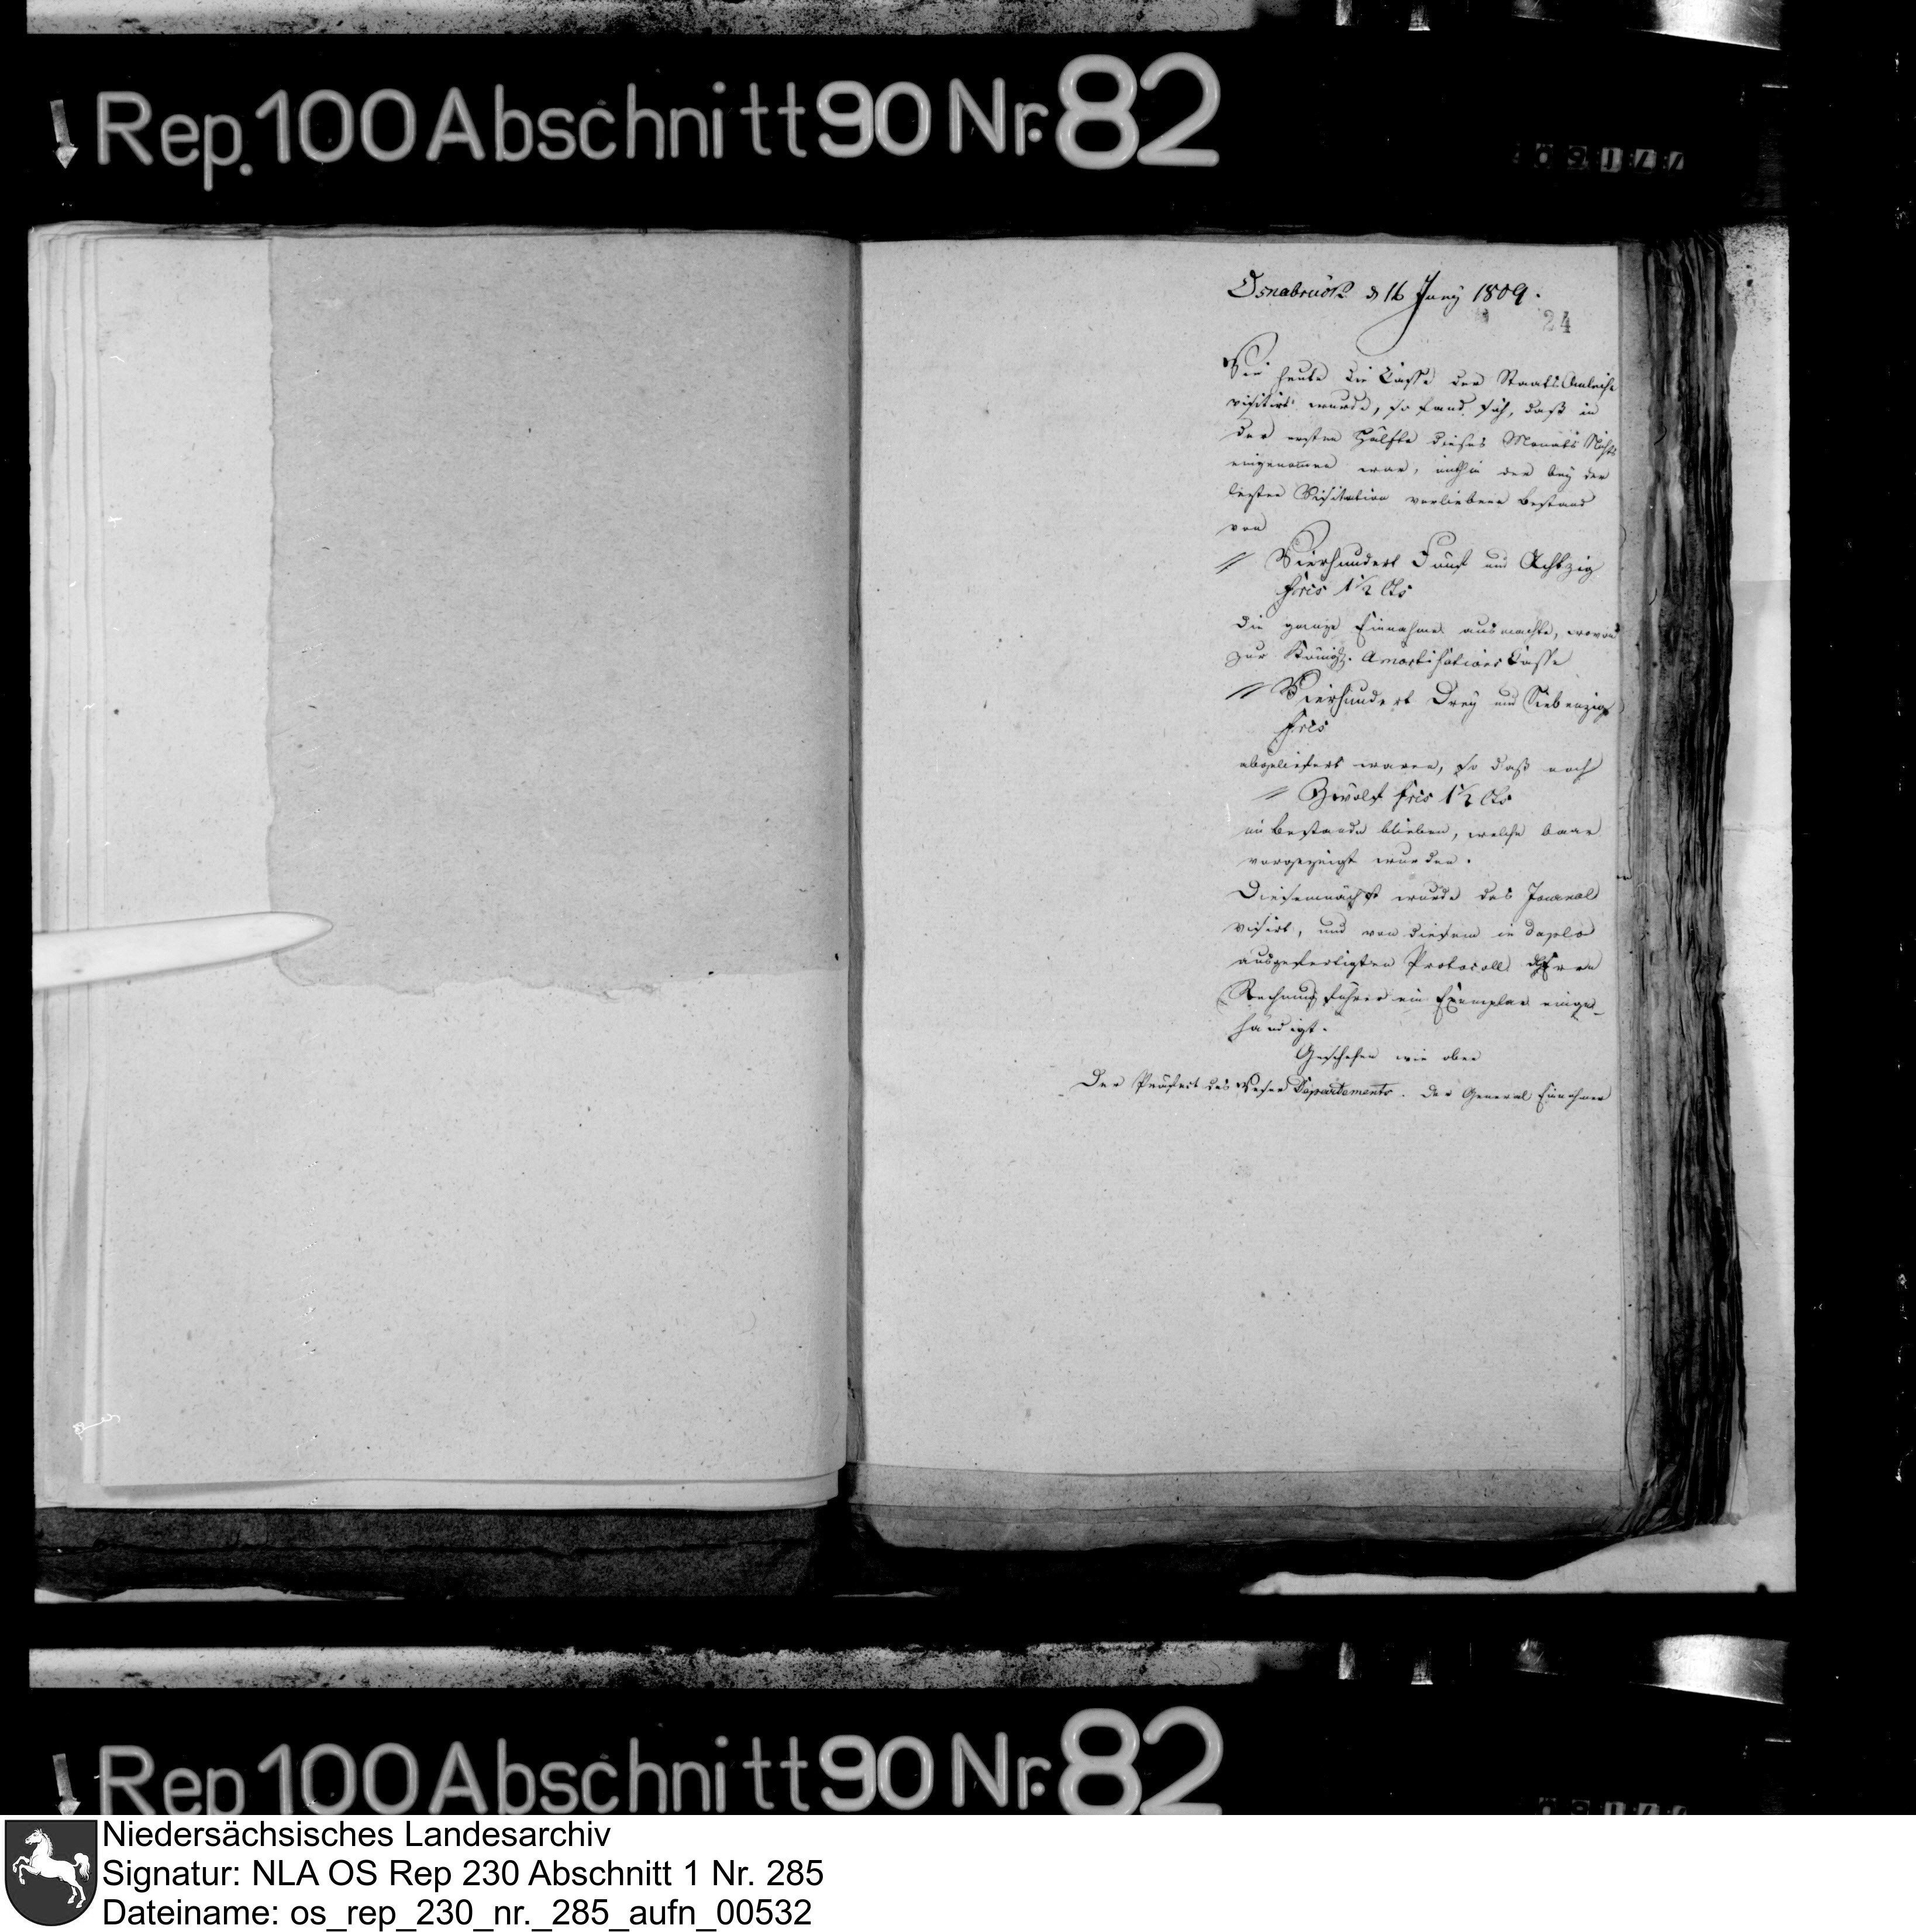 Rep. 100 Abschnitt 90 Nr. 82
Osnabrück d 16 Juny 1809.
24
Wie heute die Casse der Staats Anleihe
visitirt wurde, so fand sich, daß in
der ersten Hälfte dieses Monats Nichts
eingenommen war, mithin der bey der
lezten Visitation verliebene Bestand
von
// Vierhundert Fünf und Achtzig
Frcs 1½ Cts
die ganze Einnahme ausmachte, wovon
zur Königl. Amortisations Casse
// Vierhundert Drey und Siebenzig
Frcs
abgeliefert waren, so daß noch
// Zwölf Frcs 1½ Cts
in Bestande blieben, welche baar
vorgezeigt wurden.
Diesemnächst wurde das Journal
visirt, und von diesem in duplo
ausgefertigten Protocoll
Rechnungsführer ein Exemplar einge-
händigt.
Geschehen wie oben
Der Präfect des Weser Departements. Der General Einnehmer
Rep 100 Abschnitt 90 Nr. 82
Niedersächsisches Landesarchiv
Signatur: NLA OS Rep 230 Abschnitt 1 Nr. 285
Dateiname: os_rep_230_nr._285_aufn_00532